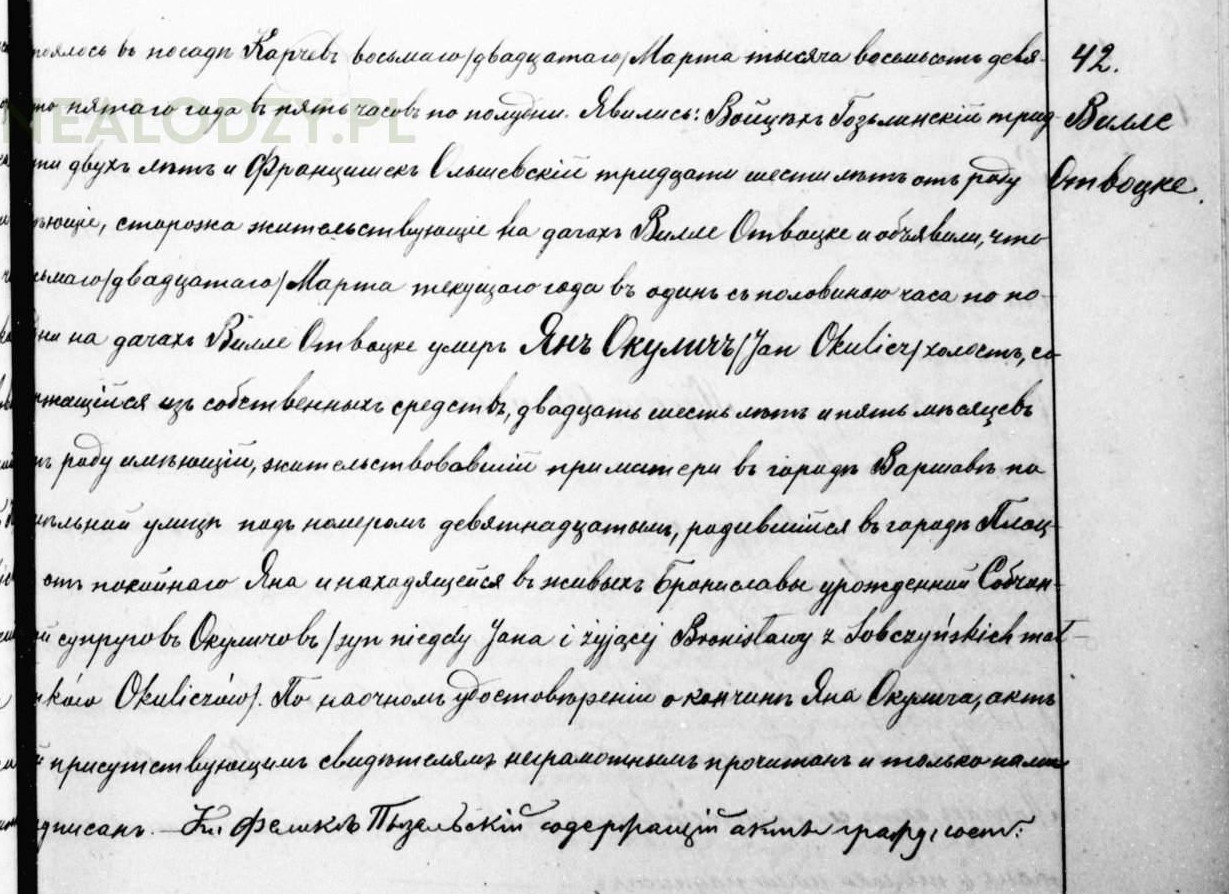 NEALODZY.PL
оялось въ посадѣ Карчевъ восьмаго /двадцатаго/ Марта тысяча восемьсотъ девя-
то пятаго года въ пять часовъ по полудни. Явились: Войцѣхъ Гозьлинскій трид-
ти двухъ лѣтъ и Францишекъ Ольшевскій тридцати шести лѣтъ отъ роду
ѣющіе, сторожа жительствующіе на дачахъ Вилле Отвоцке и объявили, что
ьмаго /двадцатаго/ Марта текущаго года въ одинъ съ половиною часа по по-
ни на дачахъ Вилле Отвоцке умеръ Янъ Окуличъ /Jan Okulicz/ холостъ, со
жащійся изъ собственныхъ средствъ, двадцать шесть лѣтъ и пять мѣсяцевъ
ъ роду имѣющій, жительствовавшій при матери въ городѣ Варшавѣ по
ельной улицѣ подъ номеромъ девятнадцатымъ, родившійся въ городѣ Плоц-
отъ покойнаго Яна и находящейся въ живыхъ Брониславы урожденной Собчин-
ой супруговъ Окуличовъ /syn niegdy Jana i żyjącej Bronisławy z Sobczyńskich mał-
nków Okuliczów/. По наочномъ удостовѣреніи о кончинѣ Яна Окулича, актъ
й присутствующимъ свидѣтелямъ неграмотнымъ прочитанъ и только нами
дписанъ. Кс. Феликсъ Пызельскій содержащій акты гражд. сост:
42.
Вилле
Отвоцке.